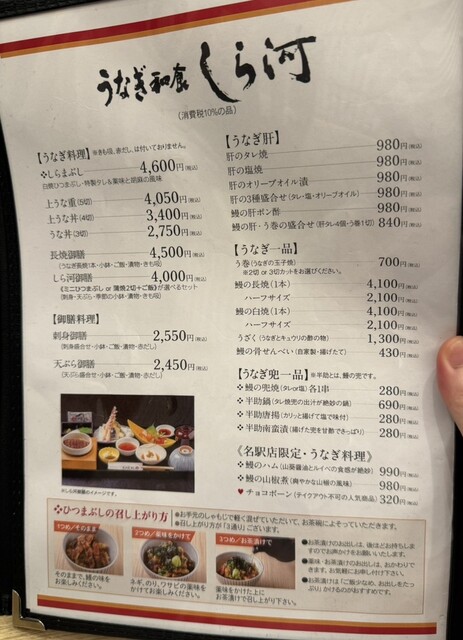 うなぎ和食 しら河
(消費税10%の品)
【うなぎ料理】※きも吸、赤だし、は付いておりません。
❖しらまぶし 4,600円(税込)
白焼ひつまぶし・特製タレ&薬味と胡麻の風味
上うな重(5切) 4,050円(税込)
上うな丼(4切) 3,400円(税込)
うな丼(3切) 2,750円(税込)
長焼御膳 4,500円(税込)
(うなぎ長焼1本・小鉢・ご飯・漬物・きも吸)
しら河御膳 4,000円(税込)
《ミニひつまぶし or 蒲焼2切+ご飯》が選べるセット
(刺身・天ぷら・季節の小鉢・漬物・きも吸)
【御膳料理】
刺身御膳 2,550円(税込)
(刺身盛合せ・小鉢・ご飯・漬物・赤だし)
天ぷら御膳 2,450円(税込)
(天ぷら盛合せ・小鉢・ご飯・漬物・赤だし)
※しら河御膳のイメージです。
【うなぎ肝】
肝のタレ焼 980円(税込)
肝の塩焼 980円(税込)
肝のオリーブオイル漬 980円(税込)
肝の3種盛合せ(タレ・塩・オリーブオイル) 980円(税込)
鰻の肝ポン酢 980円(税込)
鰻の肝・う巻の盛合せ(肝タレ4個・う巻1切) 840円(税込)
【うなぎ一品】
う巻(うなぎの玉子焼) 700円(税込)
※2切 or 3切カットをお選びください。
鰻の長焼(1本) 4,100円(税込)
ハーフサイズ 2,100円(税込)
鰻の白焼(1本) 4,100円(税込)
ハーフサイズ 2,100円(税込)
うざく(うなぎとキュウリの酢の物) 1,300円(税込)
鰻の骨せんべい(自家製・揚げたて) 430円(税込)
【うなぎ兜一品】※半助とは、鰻の兜です。
❖鰻の兜焼(タレor塩) 各1串 280円(税込)
❖半助鍋(タレ焼兜の出汁が絶妙の鍋) 690円(税込)
❖半助唐揚(カリッと揚げて塩で味付) 280円(税込)
❖半助南蛮漬(揚げた兜を甘酢でさっぱり) 280円(税込)
《名駅店限定・うなぎ料理》
❖鰻のハム(山葵醤油とルイベの食感が絶妙) 990円(税込)
❖鰻の山椒煮(爽やかな山椒の風味) 980円(税込)
♥チョコボーン(テイクアウト不可の人気商品) 320円(税込)
❖ひつまぶしの召し上がり方
●お手元のしゃもじで軽く混ぜていただいて、お茶碗によそっていただきます。
●召し上がり方が「3通り」ございます。
1つめ/そのまま
そのままで、鰻の味を
お楽しみください。
2つめ/薬味をかけて
ネギ、のり、ワサビの薬味を
かけてお楽しみください。
3つめ/お茶漬けで
薬味をかけた上に
お茶漬けで召し上がり下さい。
●お茶漬けのお出しは、後ほどお持ちしま
すのでお声かけをお願いいたします。
●薬味・お茶漬けのお出しは、おかわりで
きます。お気軽にお申し付け下さい。
●お茶漬けは「ご飯少なめ、お出しをたっ
ぷり」かけるのがおすすめです。